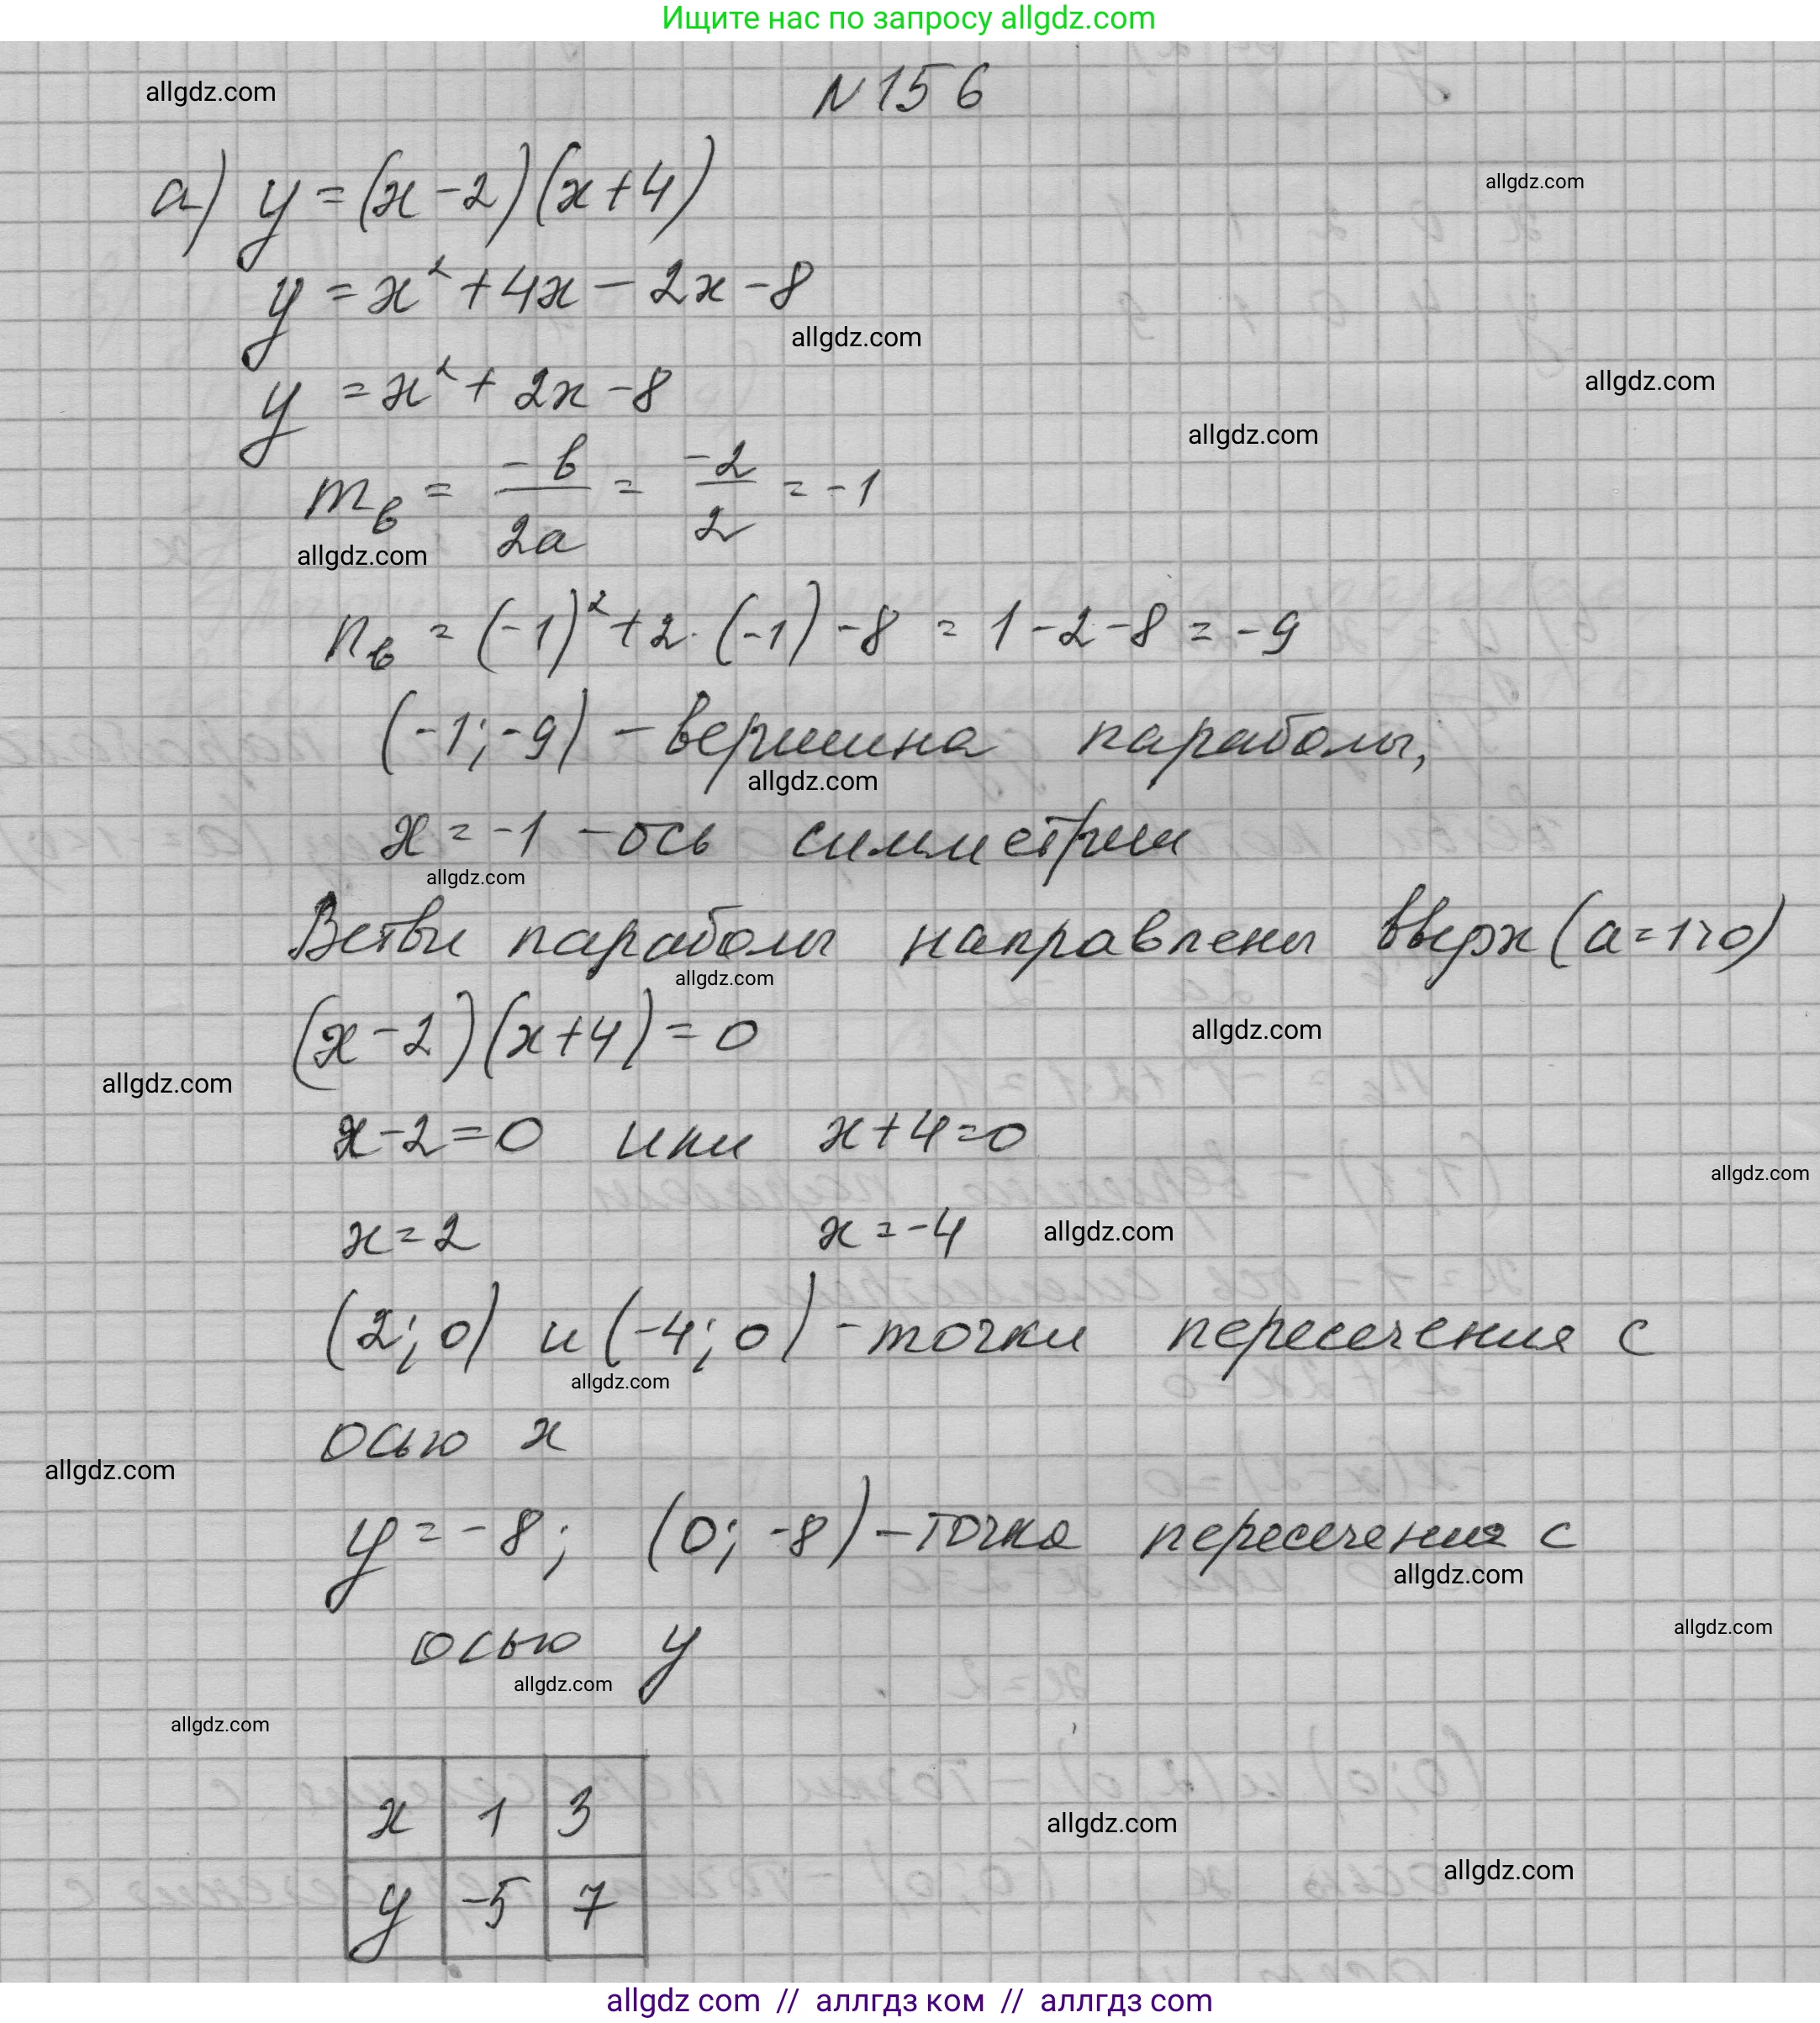 Ищите нас по запросу allgdz.com
allgdz.com
N 156
allgdz.com
а) y = (x - 2)(x + 4)
y = x² + 4x - 2x - 8
allgdz.com
allgdz.com
y = x² + 2x - 8
allgdz.com
m_в = -b/2a = -2/2 = -1
allgdz.com
n_в = (-1)² + 2·(-1) - 8 = 1 - 2 - 8 = -9
(-1; -9) - вершина параболы,
allgdz.com
x = -1 - ось симметрии
allgdz.com
Ветви параболы направлены вверх (a = 1 > 0)
allgdz.com
(x - 2)(x + 4) = 0
allgdz.com
allgdz.com
x - 2 = 0 или x + 4 = 0
allgdz.com
x = 2 x = -4
allgdz.com
(2; 0) и (-4; 0) - точки пересечения с
allgdz.com
осью x
allgdz.com
y = -8; (0; -8) - точка пересечения с
allgdz.com
allgdz.com
осью y
allgdz.com
allgdz.com
x 1 3
allgdz.com
allgdz.com
y -5 7
allgdz com // аллгдз ком // аллгдз com